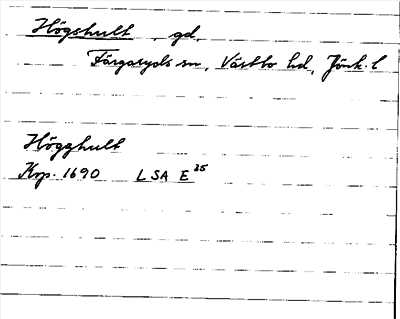 Högshult, gd,
Färgaryds sn, Västbo hd, Jönk. l
Högghult
Krp. 1690 LSA E 35